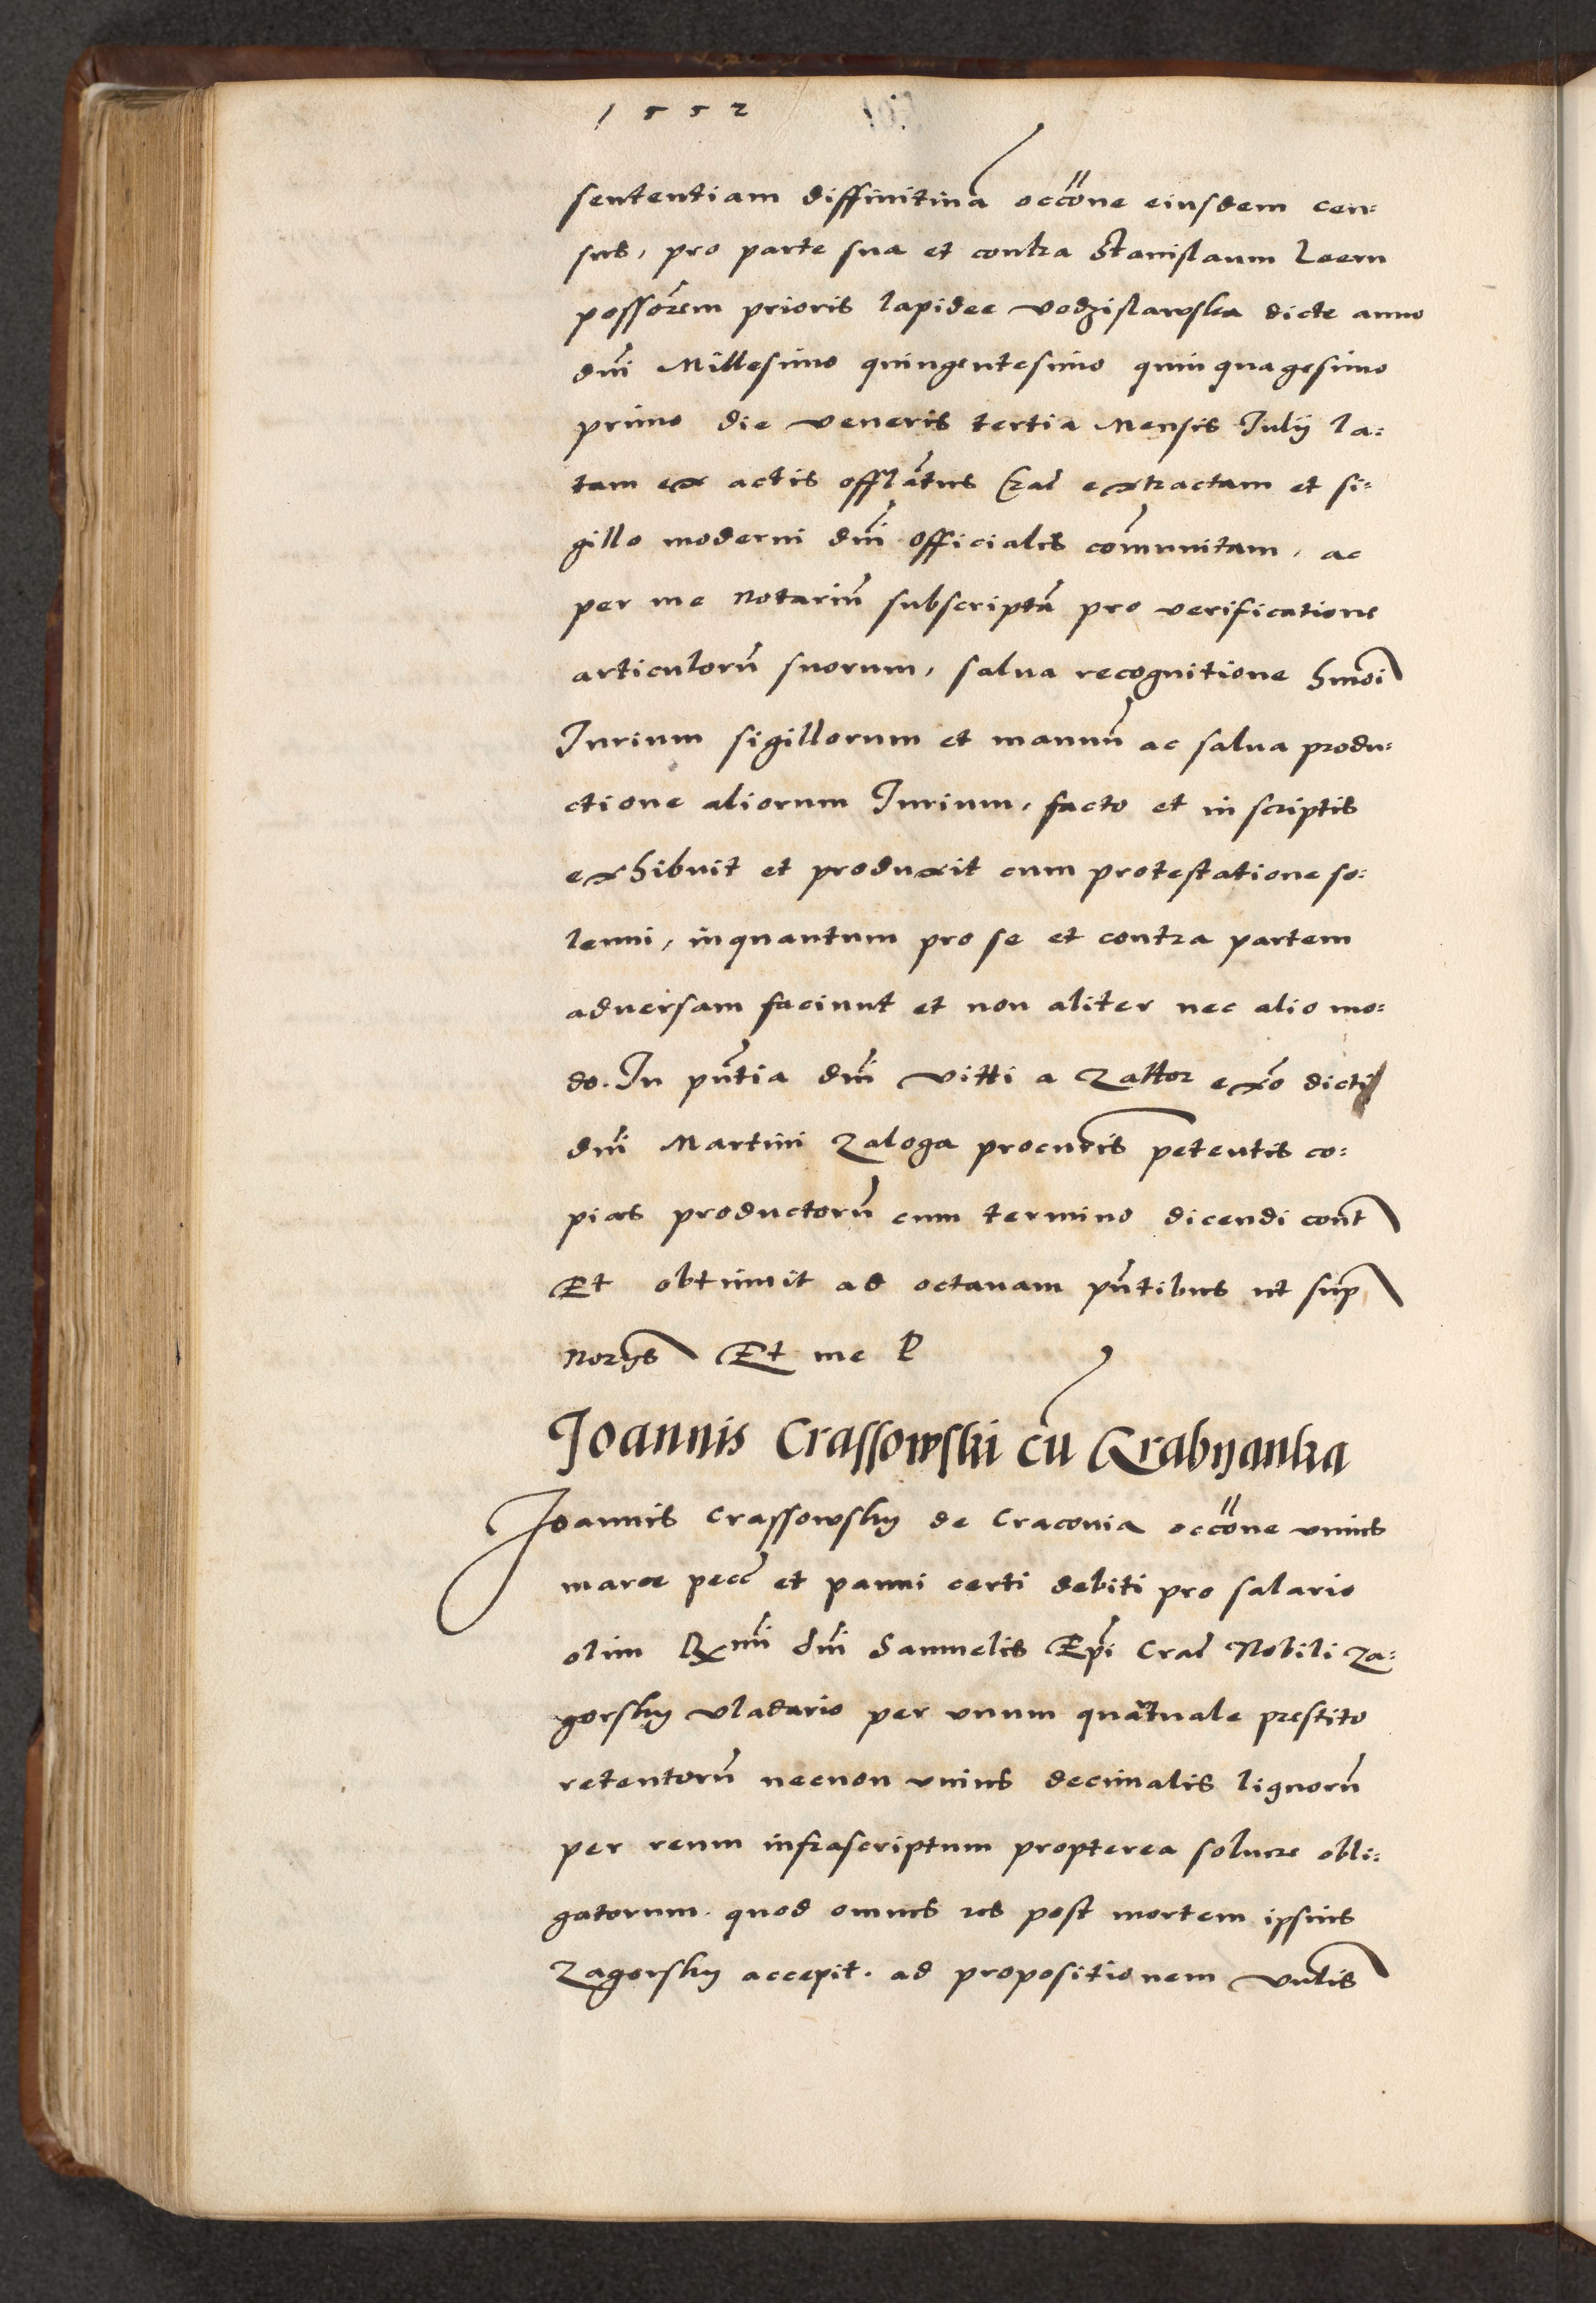 1552
sententiam diffinitiua͂ occo͂ne eiusdem cen:
sus, pro parte sua et contra Stanislaum Leem
posso͂rem prioris lapidee Vodzislawska dicte anno
dn͂i Millesimo quingentesimo quinquagesimo
primo die veneris tertia Mensis Iulij la:
tam ex actis offla͂tus Crac͂ extractam et si:
gillo moderni dn͂i officialis com͂unitam, ac
per me Notariu͂ subscripta͂ pro verificatione
articuloru͂ suorum, salua recognitione hmo͂i
Iurium sigillorum et manuu͂ ac salua produ:
ctione aliorum Iurium, facto et in scriptis
exhibuit et produxit cum protestatione so:
lenni, inquantum pro se et contra partem
aduersam faciunt et non aliter nec alio mo:
do. In pn͂tia dn͂i Vitti a Zattor ex͂o dicti
dn͂i Martini Zaloga procur͂is petentis co:
pias productoru͂ cum termino dicendi cont͂
Et obtinuit ad octauam pn͂tibus ut sup͂
Norijs͂ Et me P
Joannis Crassowski cu͂ Krabyanka
Joannis Crassowsky de Craconia occo͂ne vnius
marce pecc͂ et panni certi debiti pro salario
olim Rx͂mi dn͂i Samuelis Ep͂i Crac͂ Nobili Za:
gorsky vladario per vnum quartuale prestito
retentoru͂ necnon vnius decimalis lignoru͂
per reum infrascriptum propterea soluere obli:
gatorum. quod omnes res post mortem ipsius
Zagorsky accepit. ad propositionem vul͂is